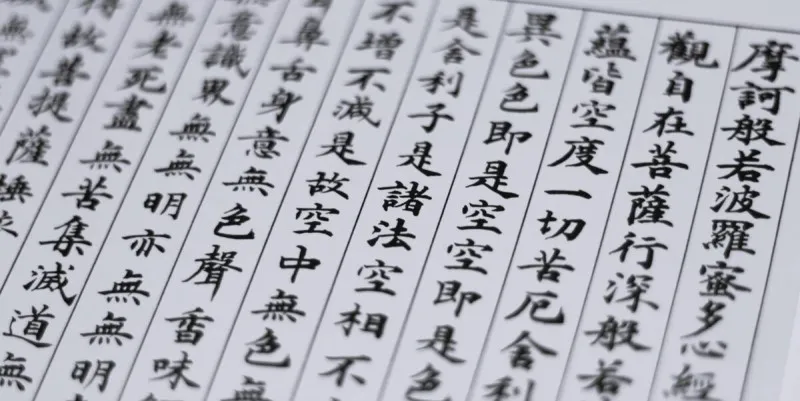 摩訶般若波羅蜜多心經
觀自在菩薩行深般若
蘊皆空度一切苦厄舍利
異色色即是空空即是色
是舍利子是諸法空相不
不增不減是故空中無色無
鼻舌身意無色聲香味
意識界無無明亦無無明
無老死盡無苦集滅道無
得故菩提薩埵